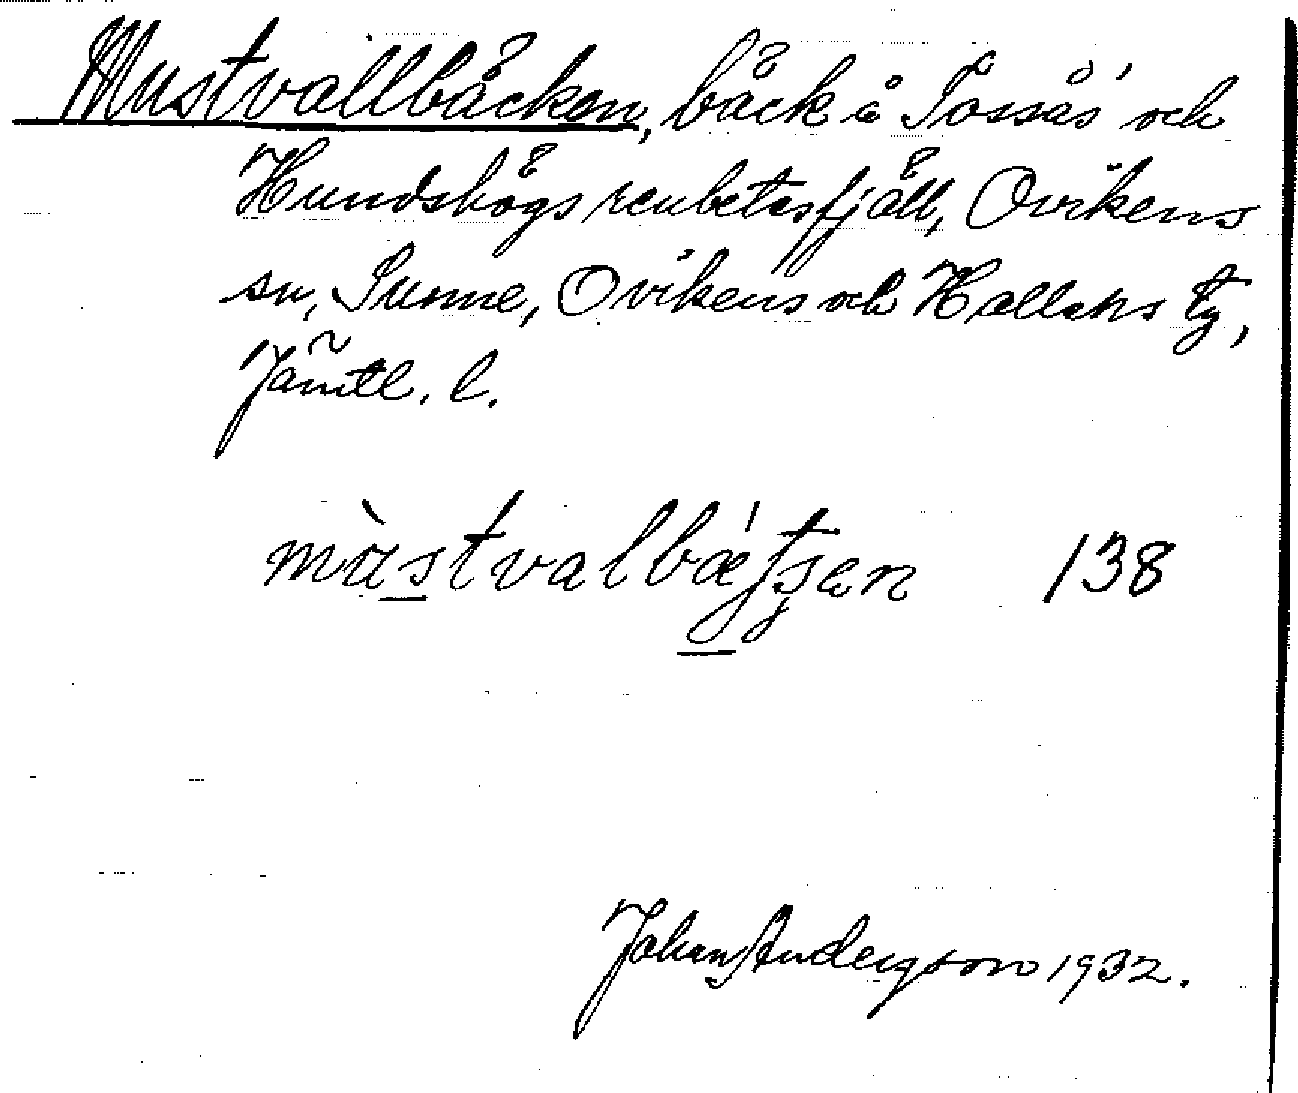 Mustvallbäcken, bäck å Tossås och
Hundshögs renbetesfjäll, Ovikens
sn, Sunne, Ovikens och Hallens tg,
Jämtl. l.
mùstvalbǽtʂen 138
Johan Anderzson 1932.